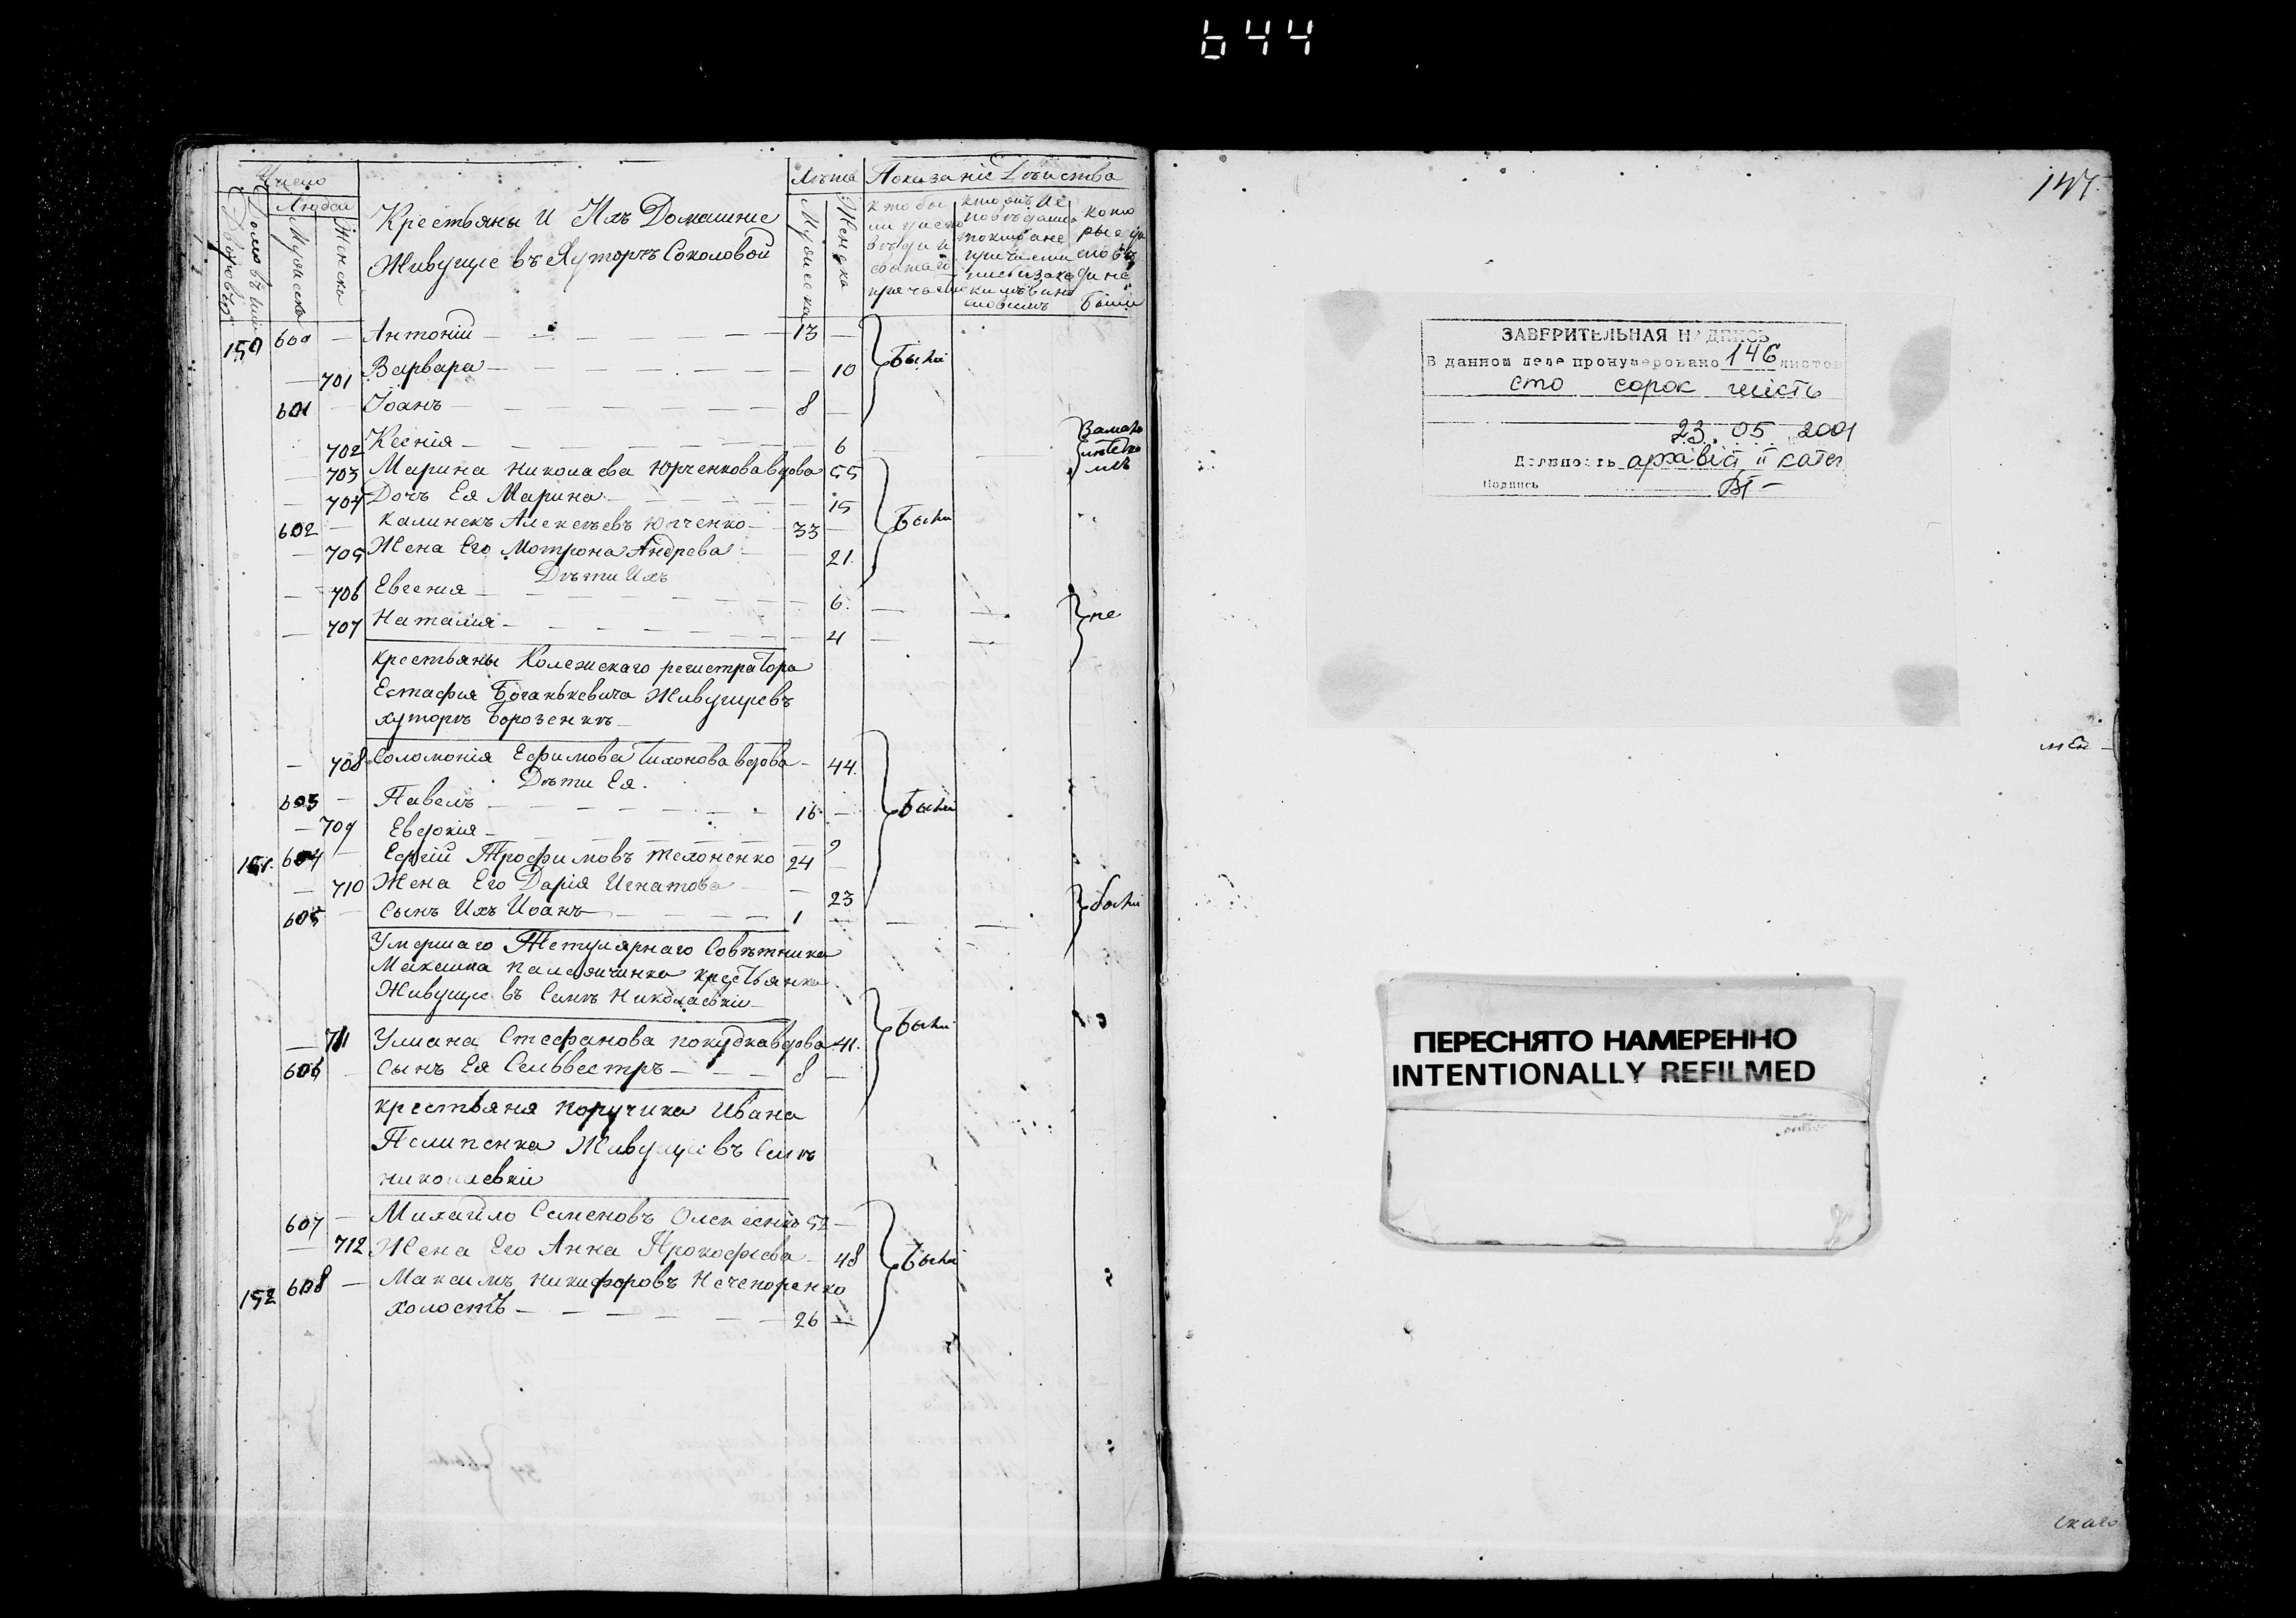 644
Число
Лѣта Показаніе Действа
Людей
Дворовъ
Домовъ
Мужеска
Женска
Крестьяны И Ихъ Домашніе
Живущіе въ Хуторѣ Соколовой
Мужеска
Женска
Были
150 600 — Антоній — 13 —
— 701 Варвара — — 10
Были
601 — Іоанъ — 8 —
702 Ксенія — 6
— 703 Марина Николаева Юрченкова вдова 55
— 704 Дочъ Ея Марина — 15
602 — Калиникъ Алексѣевъ Юрченко — 33 —
Были
— 705 Жена Его Мотрона Андреева — 21.
Дѣти Ихъ
— 706 Евгения — 6.
— 707 Наталия — 4
не
крестьяны Колежскаго регистратора
Естафия Боганькевича Живущіе въ
хуторѣ Борозенкѣ
— 708 Соломонія Ефимова Тихонова вдова — 44.
Дѣти Ея.
603 — Павелъ — 16 —
Были
— 709 Евдокия — 9
151. 604 — Трофимовъ Тихоненко 24 —
— 710 Жена Его Дарія Игнатова — 23
605 — Сынъ Ихъ Иоанъ — 1
были
Умершаго Титулярнаго Совѣтника
Максима крестьянка
Живущіе въ Селѣ Николаевки
— 711 Улиана Стефанова вдова 41.
Были
606 — Сынъ Ея Сельвестръ — 8 —
крестьяня поручика Ивана
Пелипенка Живущіе въ Селѣ
николаевки
607 — Михайло Семеновъ 52 —
— 712 Жена Его Анна Прокофіева — 48
Были
152 608 — Максимъ Никифоровъ Нечепоренко
холостъ — 26 —
147.
ЗАВЕРИТЕЛЬНАЯ НАДПИСЬ
В данном деле пронумеровано 146 листов
сто сорок шість
23. 05 2001
Должность архівіст II катег
Подпись
ПЕРЕСНЯТО НАМЕРЕННО
INTENTIONALLY REFILMED
скаго